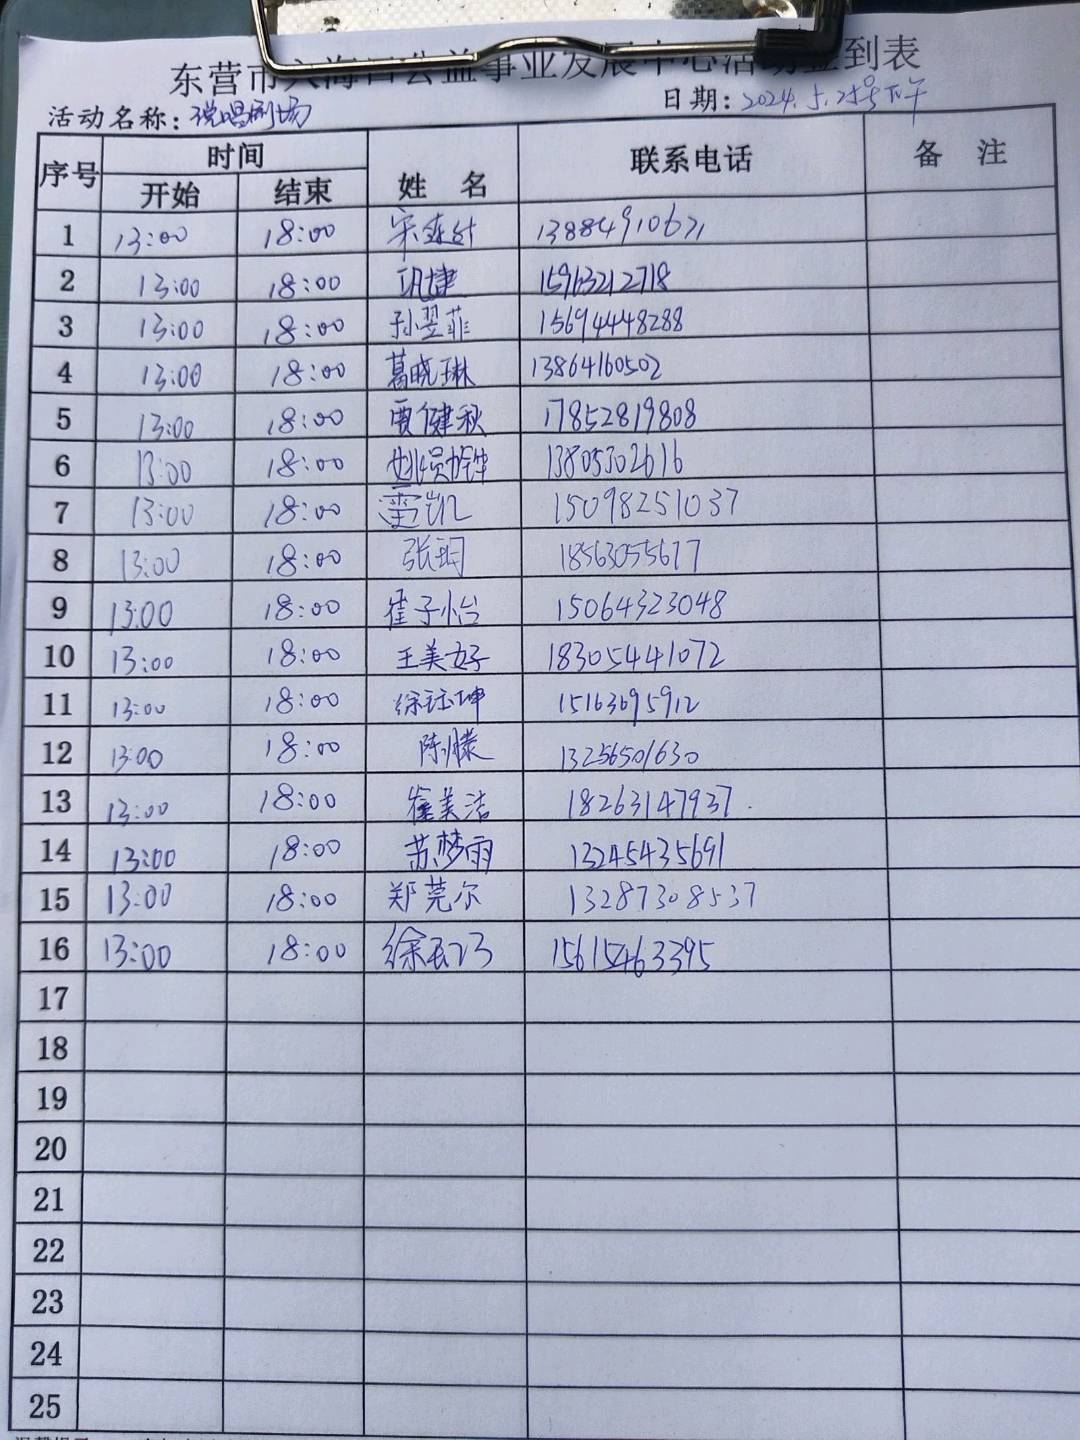 东营市入海口公益事业发展中心活动签到表
活动名称：说唱剧场 日期：2024.5.25号下午
序号 时间 姓名 联系电话 备注
开始 结束
1 13:00 18:00 13884910671
2 13:00 18:00 巩捷 15963212718
3 13:00 18:00 孙翌菲 15694448288
4 13:00 18:00 葛晓琳 13864160502
5 13:00 18:00 贾健秋 17852819808
6 13:00 18:00 13805302616
7 13:00 18:00 雷凯 15098251037
8 13:00 18:00 张玥 18563055677
9 13:00 18:00 崔子怡 15064323048
10 13:00 18:00 王美好 18305441072
11 13:00 18:00 徐钰坤 15163695912
12 13:00 18:00 陈檬 13256501630
13 13:00 18:00 崔美洁 18263147937.
14 13:00 18:00 苏梦雨 13245435691
15 13:00 18:00 郑莞尔 13287308537
16 13:00 18:00 15615463395
17
18
19
20
21
22
23
24
25